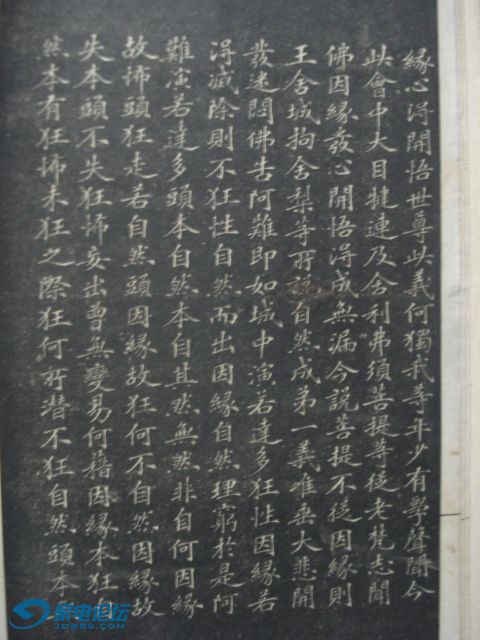 緣心得開悟世尊此義何獨我等年少有學聲聞今
此會中大目揵連及舍利弗須菩提等從老梵志聞
佛因緣發心開悟得成無漏今說菩提不從因緣則
王舍城拘舍梨等所說自然成第一義唯垂大悲開
發迷悶佛告阿難即如城中演若達多狂性因緣若
得滅除則不狂性自然而出因緣自然理窮於是阿
難演若達多頭本自然本自其然無然非自何因緣
故怖頭狂走若自然頭因緣故狂何不自然因緣故
失本頭不失狂怖妄出曾無變易何藉因緣本狂自
然本有狂怖未狂之際狂何所潛不狂自然頭本
家电论坛
JDBBS.COM